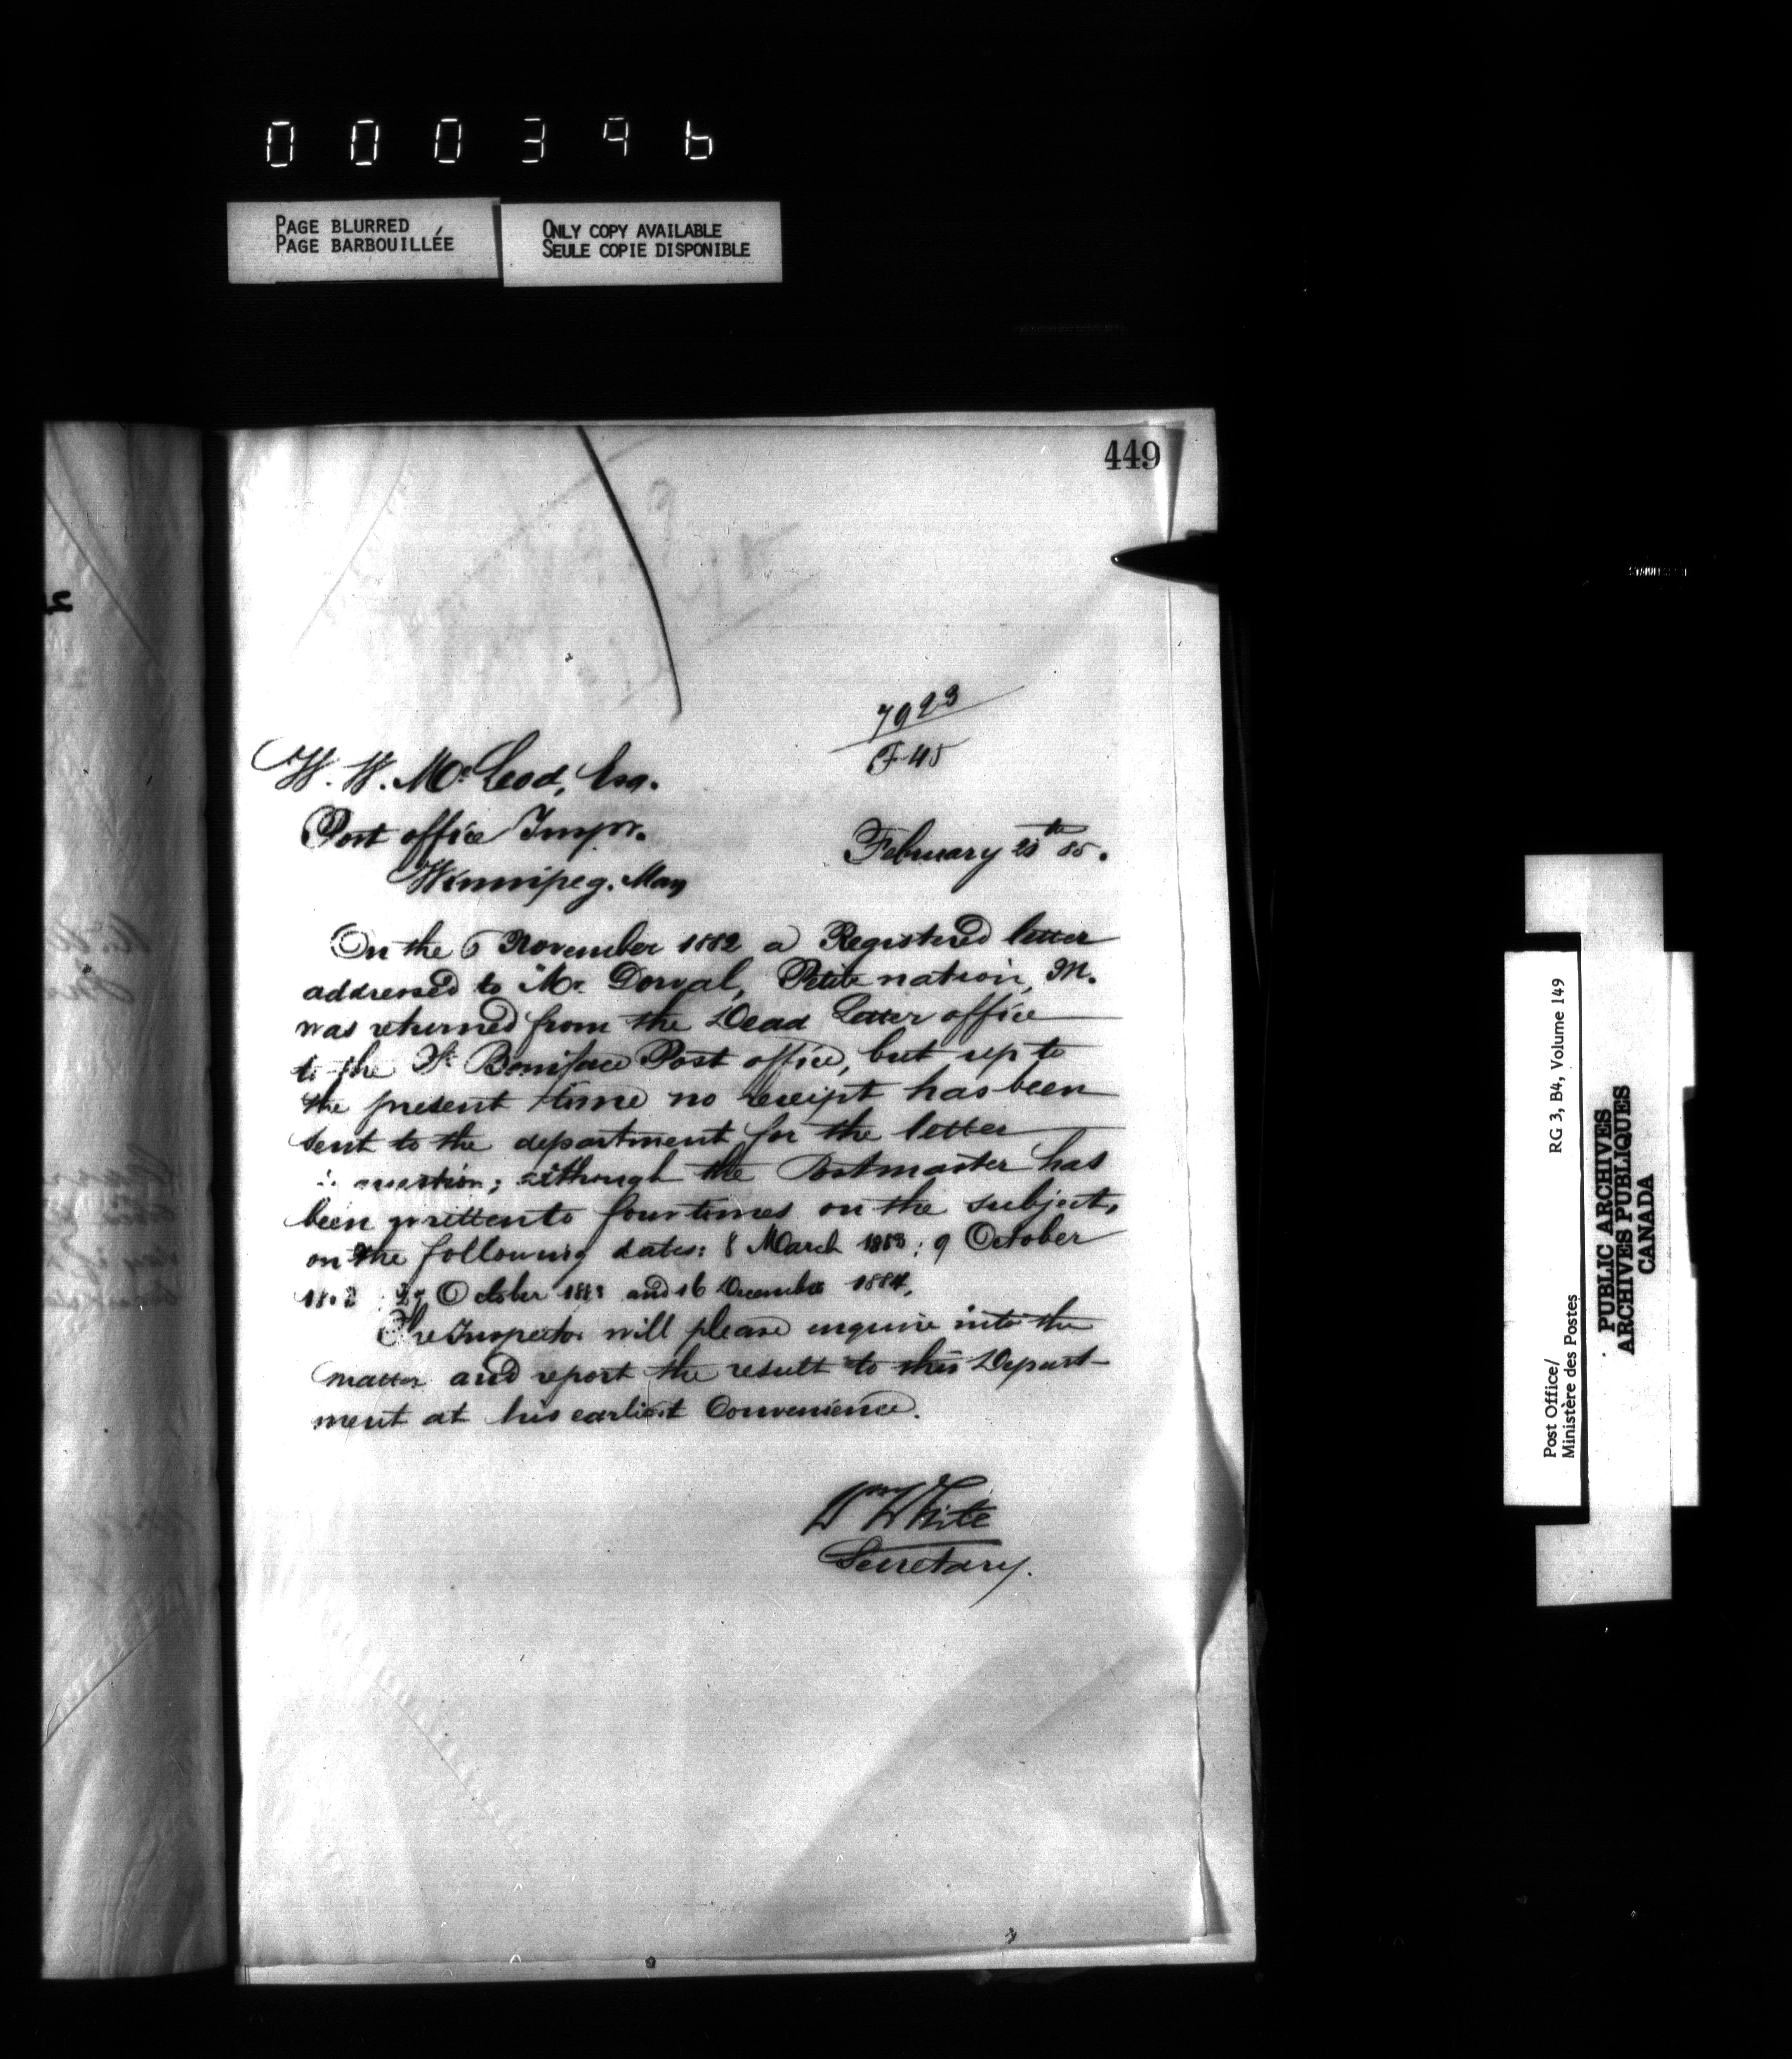 000396
PAGE BLURRED
PAGE BARBOUILLÉE
ONLY COPY AVAILABLE
SEULE COPIE DISPONIBLE
449
7923
F-45
W. W. McLeod, Esq.
Post office Inspr.
Winnipeg. Man
February th 85.
On the 6 November 1882 a Registered letter
addressed to Mr. Dorval, Petite nation, M.
was returned from the Dead Letter office
to the St Boniface Post office, but up to
the present time no receipt has been
sent to the department for the letter
question; although the Postmaster has
been written to four times on the subject,
on the following dates: 8 March 1883; 9 October
October and 16 December 1884.
The Inspector will please enquire into the
matter and report the result to this Depart-
ment at his earliest Convenience.
Wm White
Secretary.
Post Office/
Ministère des Postes
RG 3, B4, Volume 149
PUBLIC ARCHIVES
ARCHIVES PUBLIQUES
CANADA